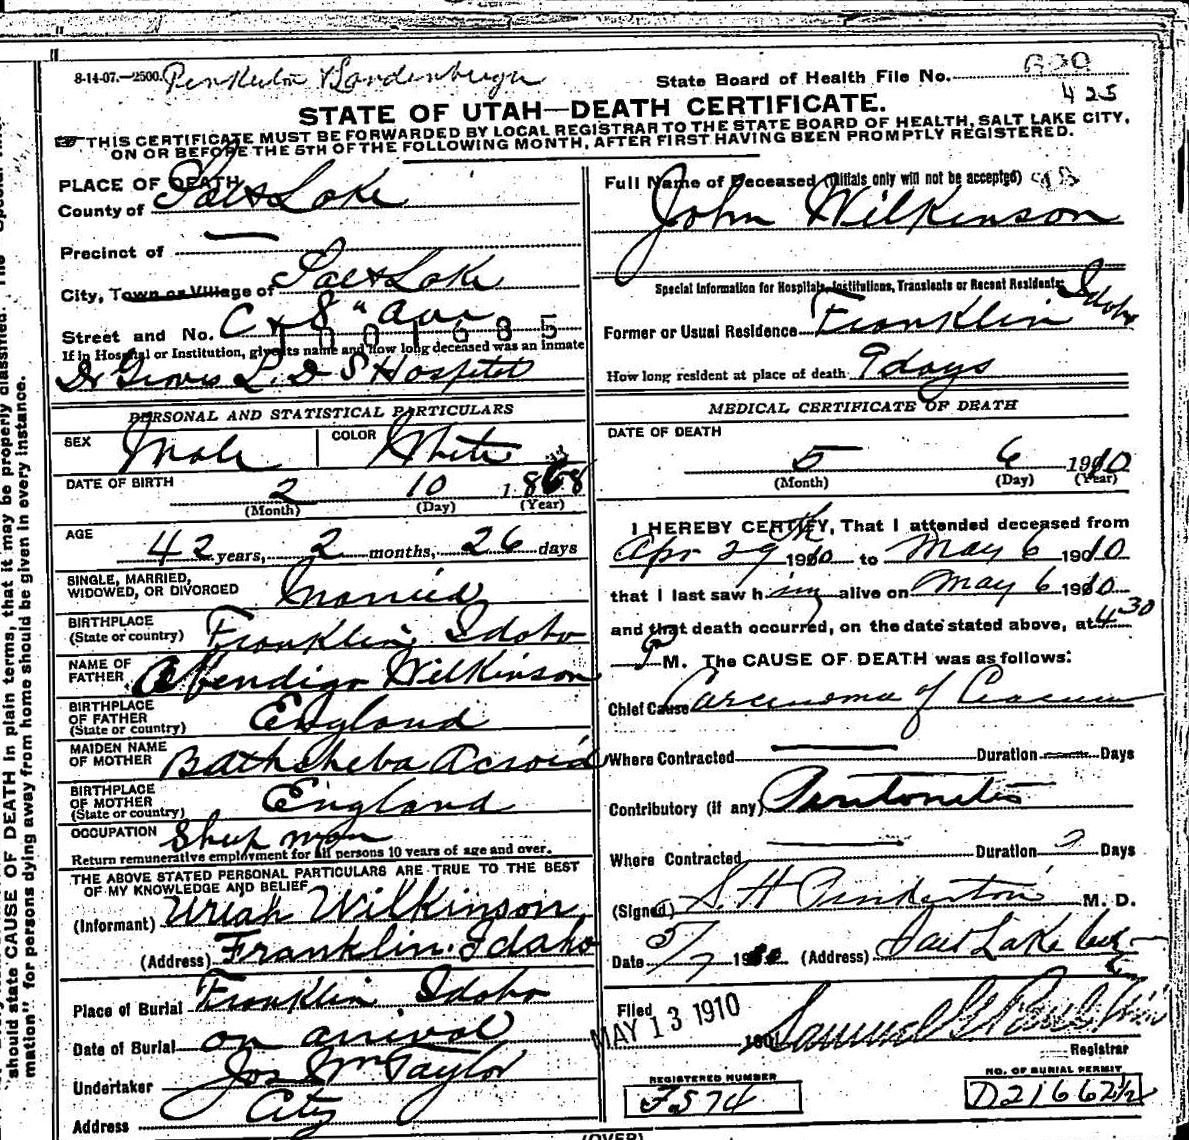 8-14-07.—2500.
State Board of Health File No.
425
STATE OF UTAH—DEATH CERTIFICATE.
THIS CERTIFICATE MUST BE FORWARDED BY LOCAL REGISTRAR TO THE STATE BOARD OF HEALTH, SALT LAKE CITY,
ON OR BEFORE THE 5TH OF THE FOLLOWING MONTH, AFTER FIRST HAVING BEEN PROMPTLY REGISTERED.
PLACE OF DEATH
County of Salt Lake
Precinct of —
City, Town or Village of Salt Lake
Street and No. C & 8" Ave
1001685
If in Hospital or Institution, give its name and how long deceased was an inmate
Dr Groves L. D S Hospital
PERSONAL AND STATISTICAL PARTICULARS
SEX Male COLOR White
DATE OF BIRTH 2 10 1868
(Month) (Day) (Year)
AGE
42 years, 2 months, 26 days
SINGLE, MARRIED,
WIDOWED, OR DIVORCED Married
BIRTHPLACE
(State or country) Franklin, Idaho
NAME OF
FATHER Abendigo Wilkinson
BIRTHPLACE
OF FATHER
(State or country) England
MAIDEN NAME
OF MOTHER Bathsheba Acroid
BIRTHPLACE
OF MOTHER
(State or country) England
OCCUPATION Sheep man
Return remunerative employment for all persons 10 years of age and over.
THE ABOVE STATED PERSONAL PARTICULARS ARE TRUE TO THE BEST
OF MY KNOWLEDGE AND BELIEF
(Informant) Uriah Wilkinson,
(Address) Franklin. Idaho
Place of Burial Franklin Idaho
Date of Burial on arrival
Undertaker Jos Wm Taylor
Address City
Full Name of Deceased (Initials only will not be accepted)
John Wilkinson
Special Information for Hospitals, Institutions, Transients or Recent Residents:
Former or Usual Residence Franklin Idaho
How long resident at place of death 9 days
MEDICAL CERTIFICATE OF DEATH
DATE OF DEATH
5 6 1910
(Month) (Day) (Year)
I HEREBY CERTIFY, That I attended deceased from
Apr 29th 1910 to May 6 1910
that I last saw him alive on May 6 1910
and that death occurred, on the date stated above, at 4 30
P M. The CAUSE OF DEATH was as follows:
Chief Cause Carcinoma of Ceacum
Where Contracted — Duration — Days
Contributory (if any) Peritonitis
Where Contracted — Duration Days
(Signed) S. H. M. D.
Date 5/7 (Address) Salt Lake
Filed
MAY 13 1910
Samuel G. Paul
Registrar
REGISTERED NUMBER
F574
NO. OF BURIAL PERMIT
D21662½
(OVER)
should state CAUSE OF DEATH in plain terms, that it may be properly classified. The "Special
mation" for persons dying away from home should be given in every instance.